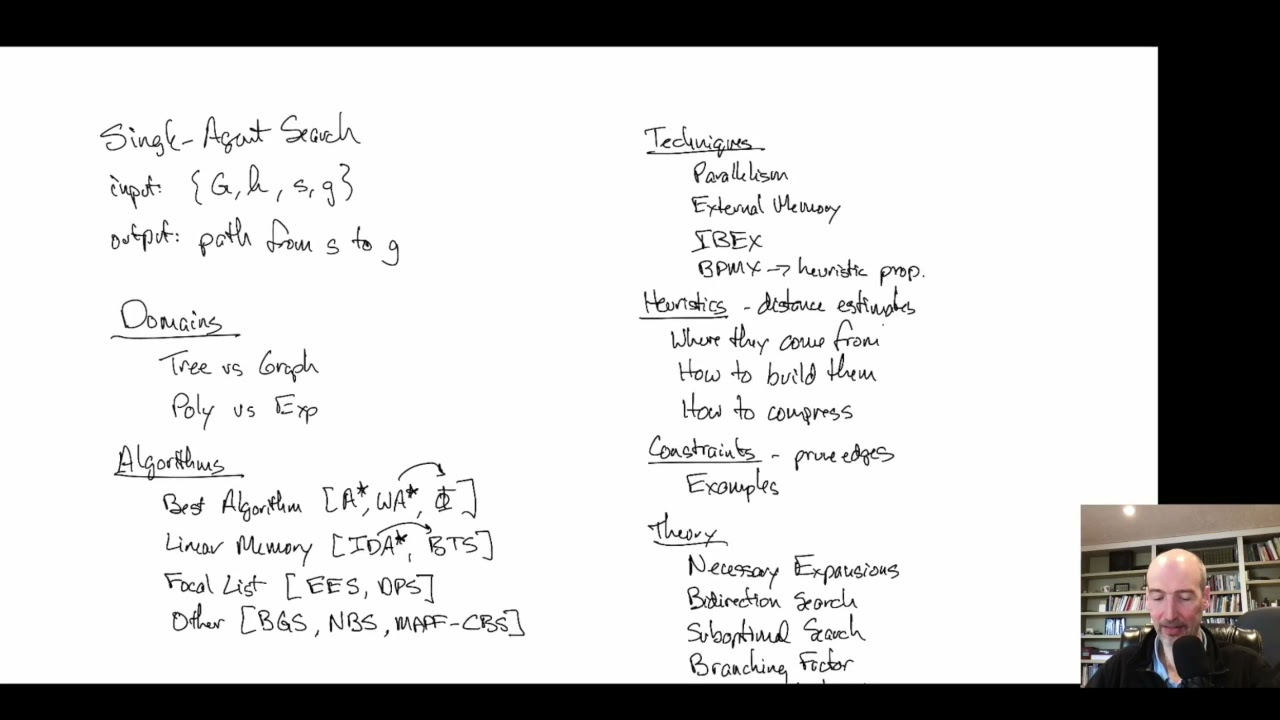 Single-Agent Search
input: {G, h, s, g}
output: path from s to g
Domains
Tree vs Graph
Poly vs Exp
Algorithms
Best Algorithm [A*, WA*, Φ]
Linear Memory [IDA*, BTS]
Focal List [EES, DPS]
Other [BGS, NBS, MAPF-CBS]
Techniques
Parallelism
External Memory
IBEX
BPMX → heuristic prop.
Heuristics - distance estimates
Where they come from
How to build them
How to compress
Constraints - prune edges
Examples
Theory
Necessary Expansions
Bidirection Search
Suboptimal Search
Branching Factor